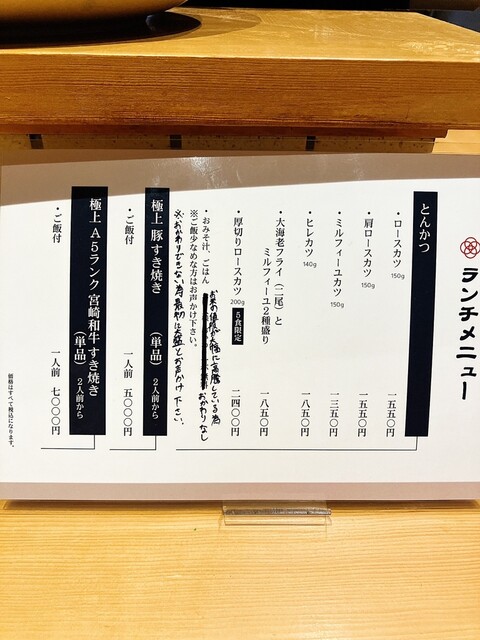 ランチメニュー
とんかつ
・ロースカツ 150g 一五五〇円
・肩ロースカツ 150g 一五五〇円
・ミルフィーユカツ 150g 一三五〇円
・ヒレカツ 140g 一八五〇円
・大海老フライ(二尾)と
ミルフィーユ2種盛り 一八五〇円
・厚切りロースカツ 200g 5食限定 二四〇〇円
・おみそ汁、ごはん
お米の価格が大幅に高騰している為
おかわりなし
※ご飯少なめな方はお声かけ下さい。
※おかわりできない為最初に大盛とお声かけ下さい。
極上 豚すき焼き (単品) 2人前から
・ご飯付 一人前 五〇〇〇円
極上A5ランク 宮崎和牛すき焼き
(単品) 2人前から
・ご飯付 一人前 七〇〇〇円
価格はすべて税込になります。